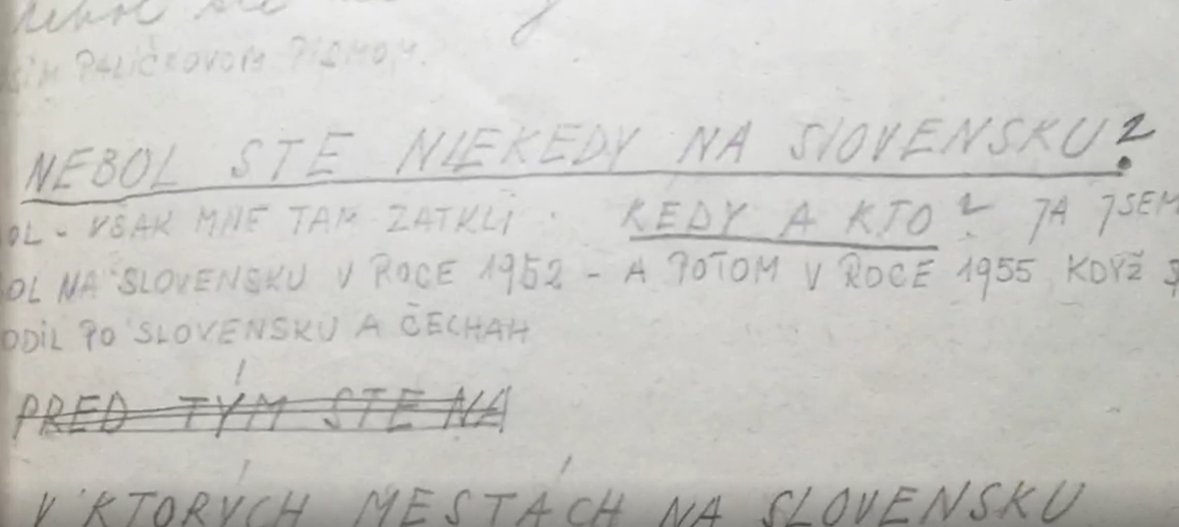 nebol ste
PALIČKOVOM PISMOM.
NEBOL STE NIEKEDY NA SLOVENSKU?
OL - VŠAK MNE TAM ZATKLI. KEDY A KTO? JA JSEM
OL NA SLOVENSKU V ROCE 1952 - A POTOM V ROCE 1955 KDYŽ
ODIL PO SLOVENSKU A ČECHAH
PRED TÝM STE NA
V KTORÝCH MESTÁCH NA SLOVENSKU